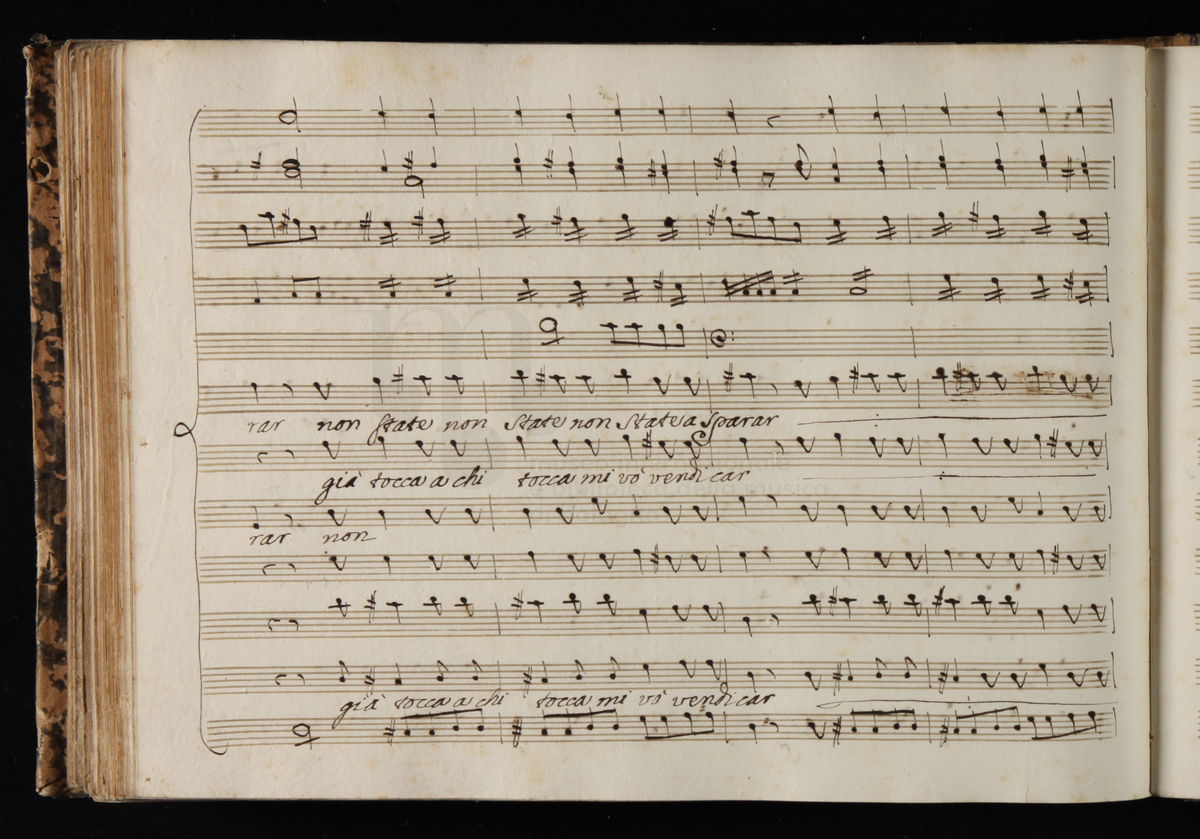 rar non state non state non state a sparar
già tocca a chi tocca mi vò vendicar
rar non
già tocca a chi tocca mi vò vendicar